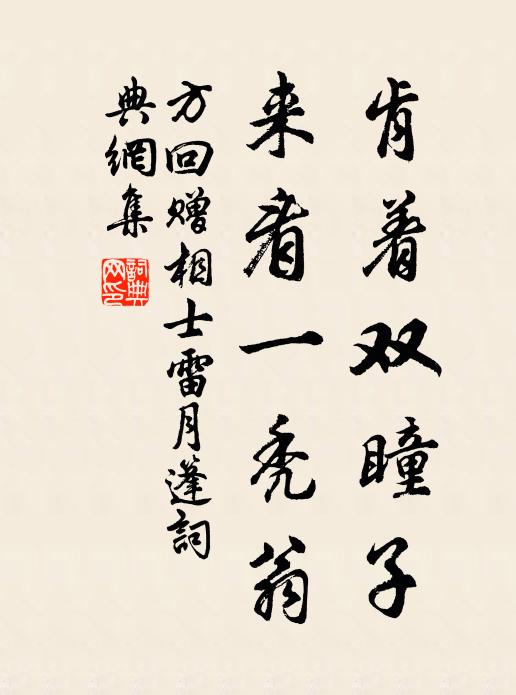 肯着双瞳子
来看一秃翁
方回赠相士雷月蓬詞
典網集
詞典
网印